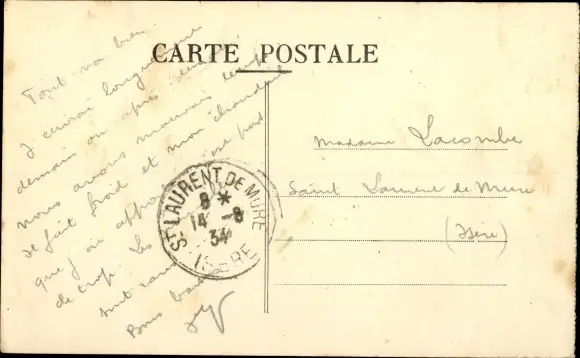 CARTE POSTALE
Tout va bien
J'écrirai longuement
demain ou après demain
nous avons mauvais temps
il fait froid et mon chandail
que j'ai n'est pas
de trop. Les
sont
Bons baisers
Madame Lacombe
Saint Laurent de Mure
(Isère)
ST LAURENT DE MURE
8 *
14 - 8
34
ISERE